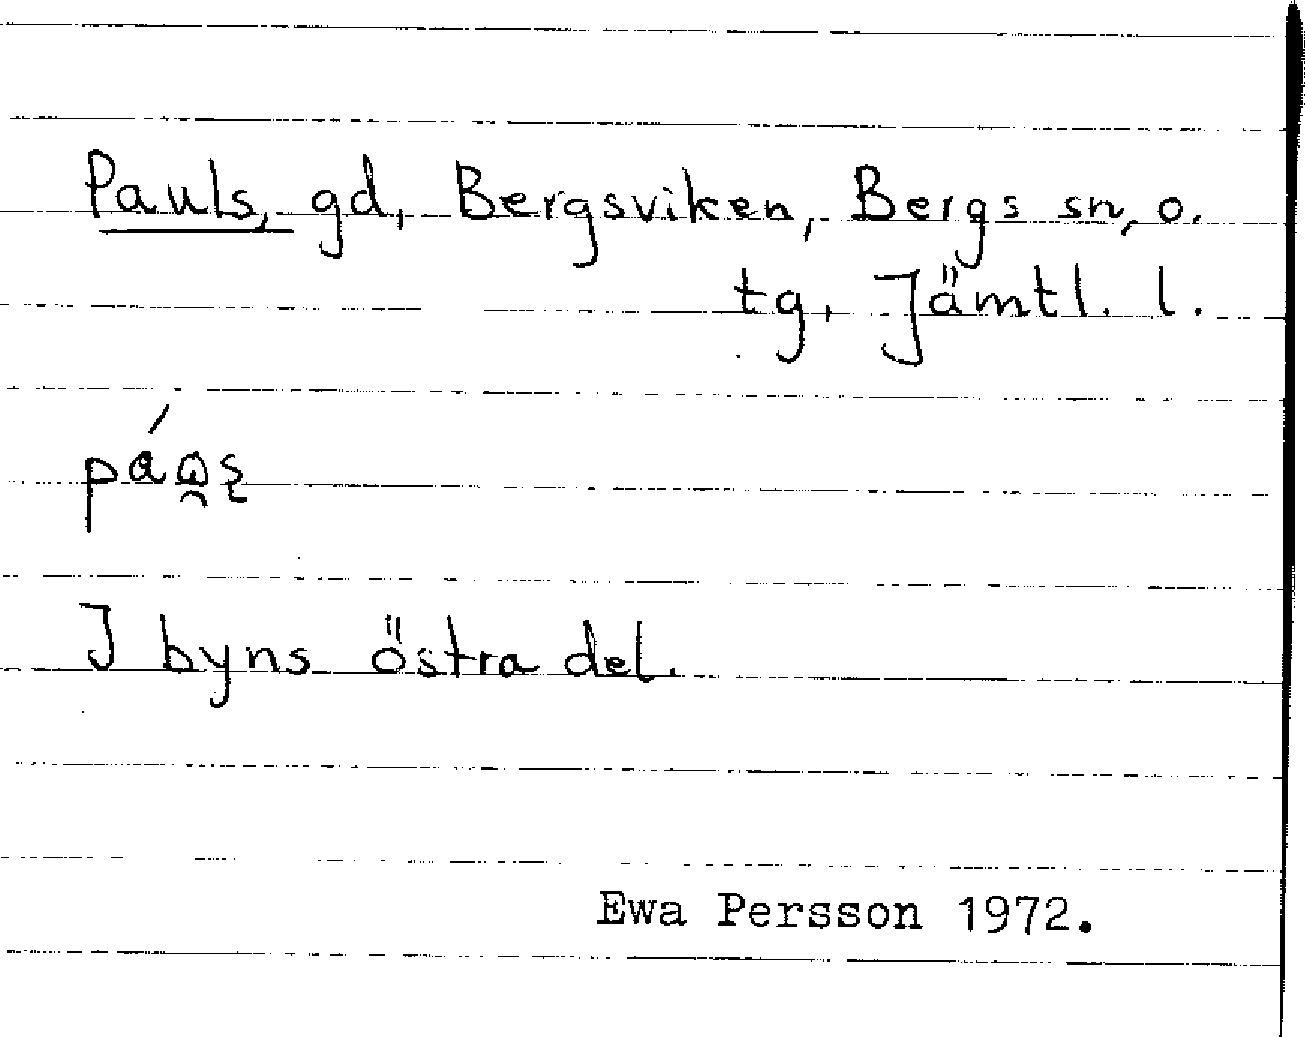 Pauls, gd, Bergsviken, Bergs sn, o.
tg, Jämtl. l.
I byns östra del.
Ewa Persson 1972.